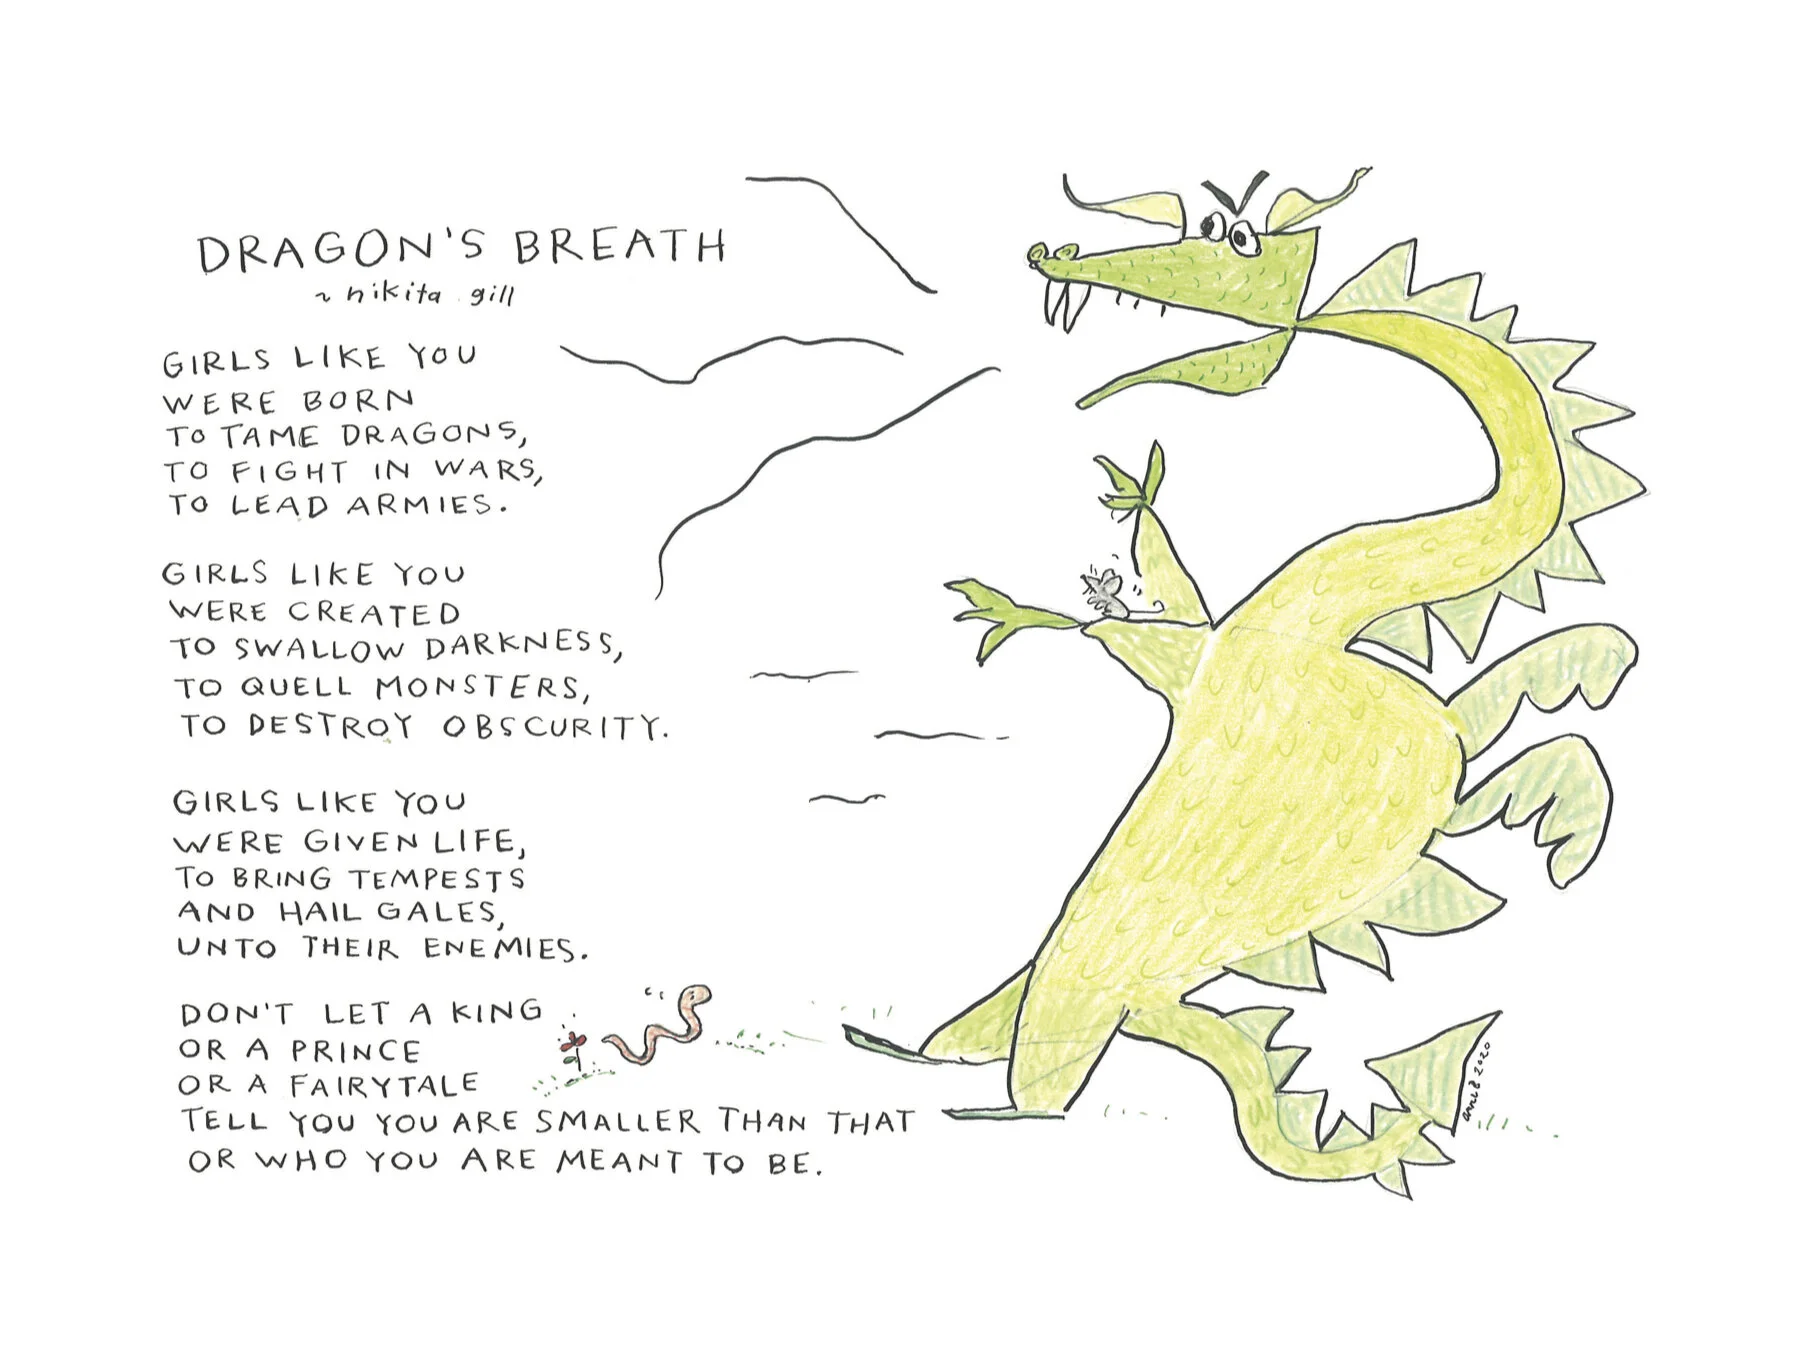 DRAGON'S BREATH
~ nikita gill
GIRLS LIKE YOU
WERE BORN
TO TAME DRAGONS,
TO FIGHT IN WARS,
TO LEAD ARMIES.
GIRLS LIKE YOU
WERE CREATED
TO SWALLOW DARKNESS,
TO QUELL MONSTERS,
TO DESTROY OBSCURITY.
GIRLS LIKE YOU
WERE GIVEN LIFE,
TO BRING TEMPESTS
AND HAIL GALES,
UNTO THEIR ENEMIES.
DON'T LET A KING
OR A PRINCE
OR A FAIRYTALE
TELL YOU YOU ARE SMALLER THAN THAT
OR WHO YOU ARE MEANT TO BE.
2020